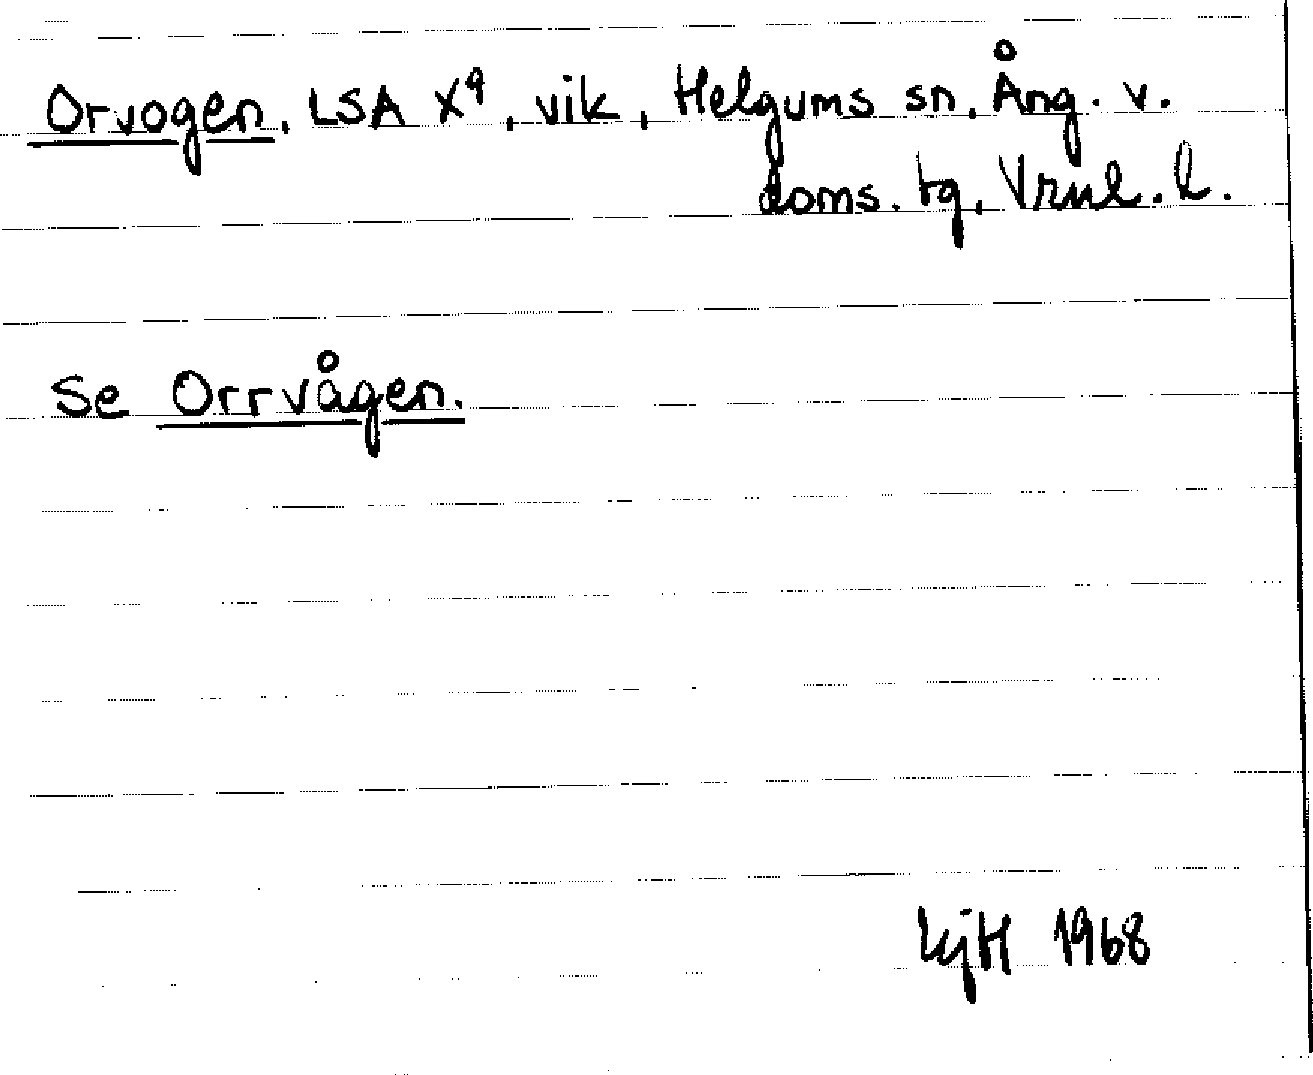 Orvogen, LSA X⁹, vik, Helgums sn, Ång. v.
doms. tg, Vrnl. l.
Se Orrvågen.
1968